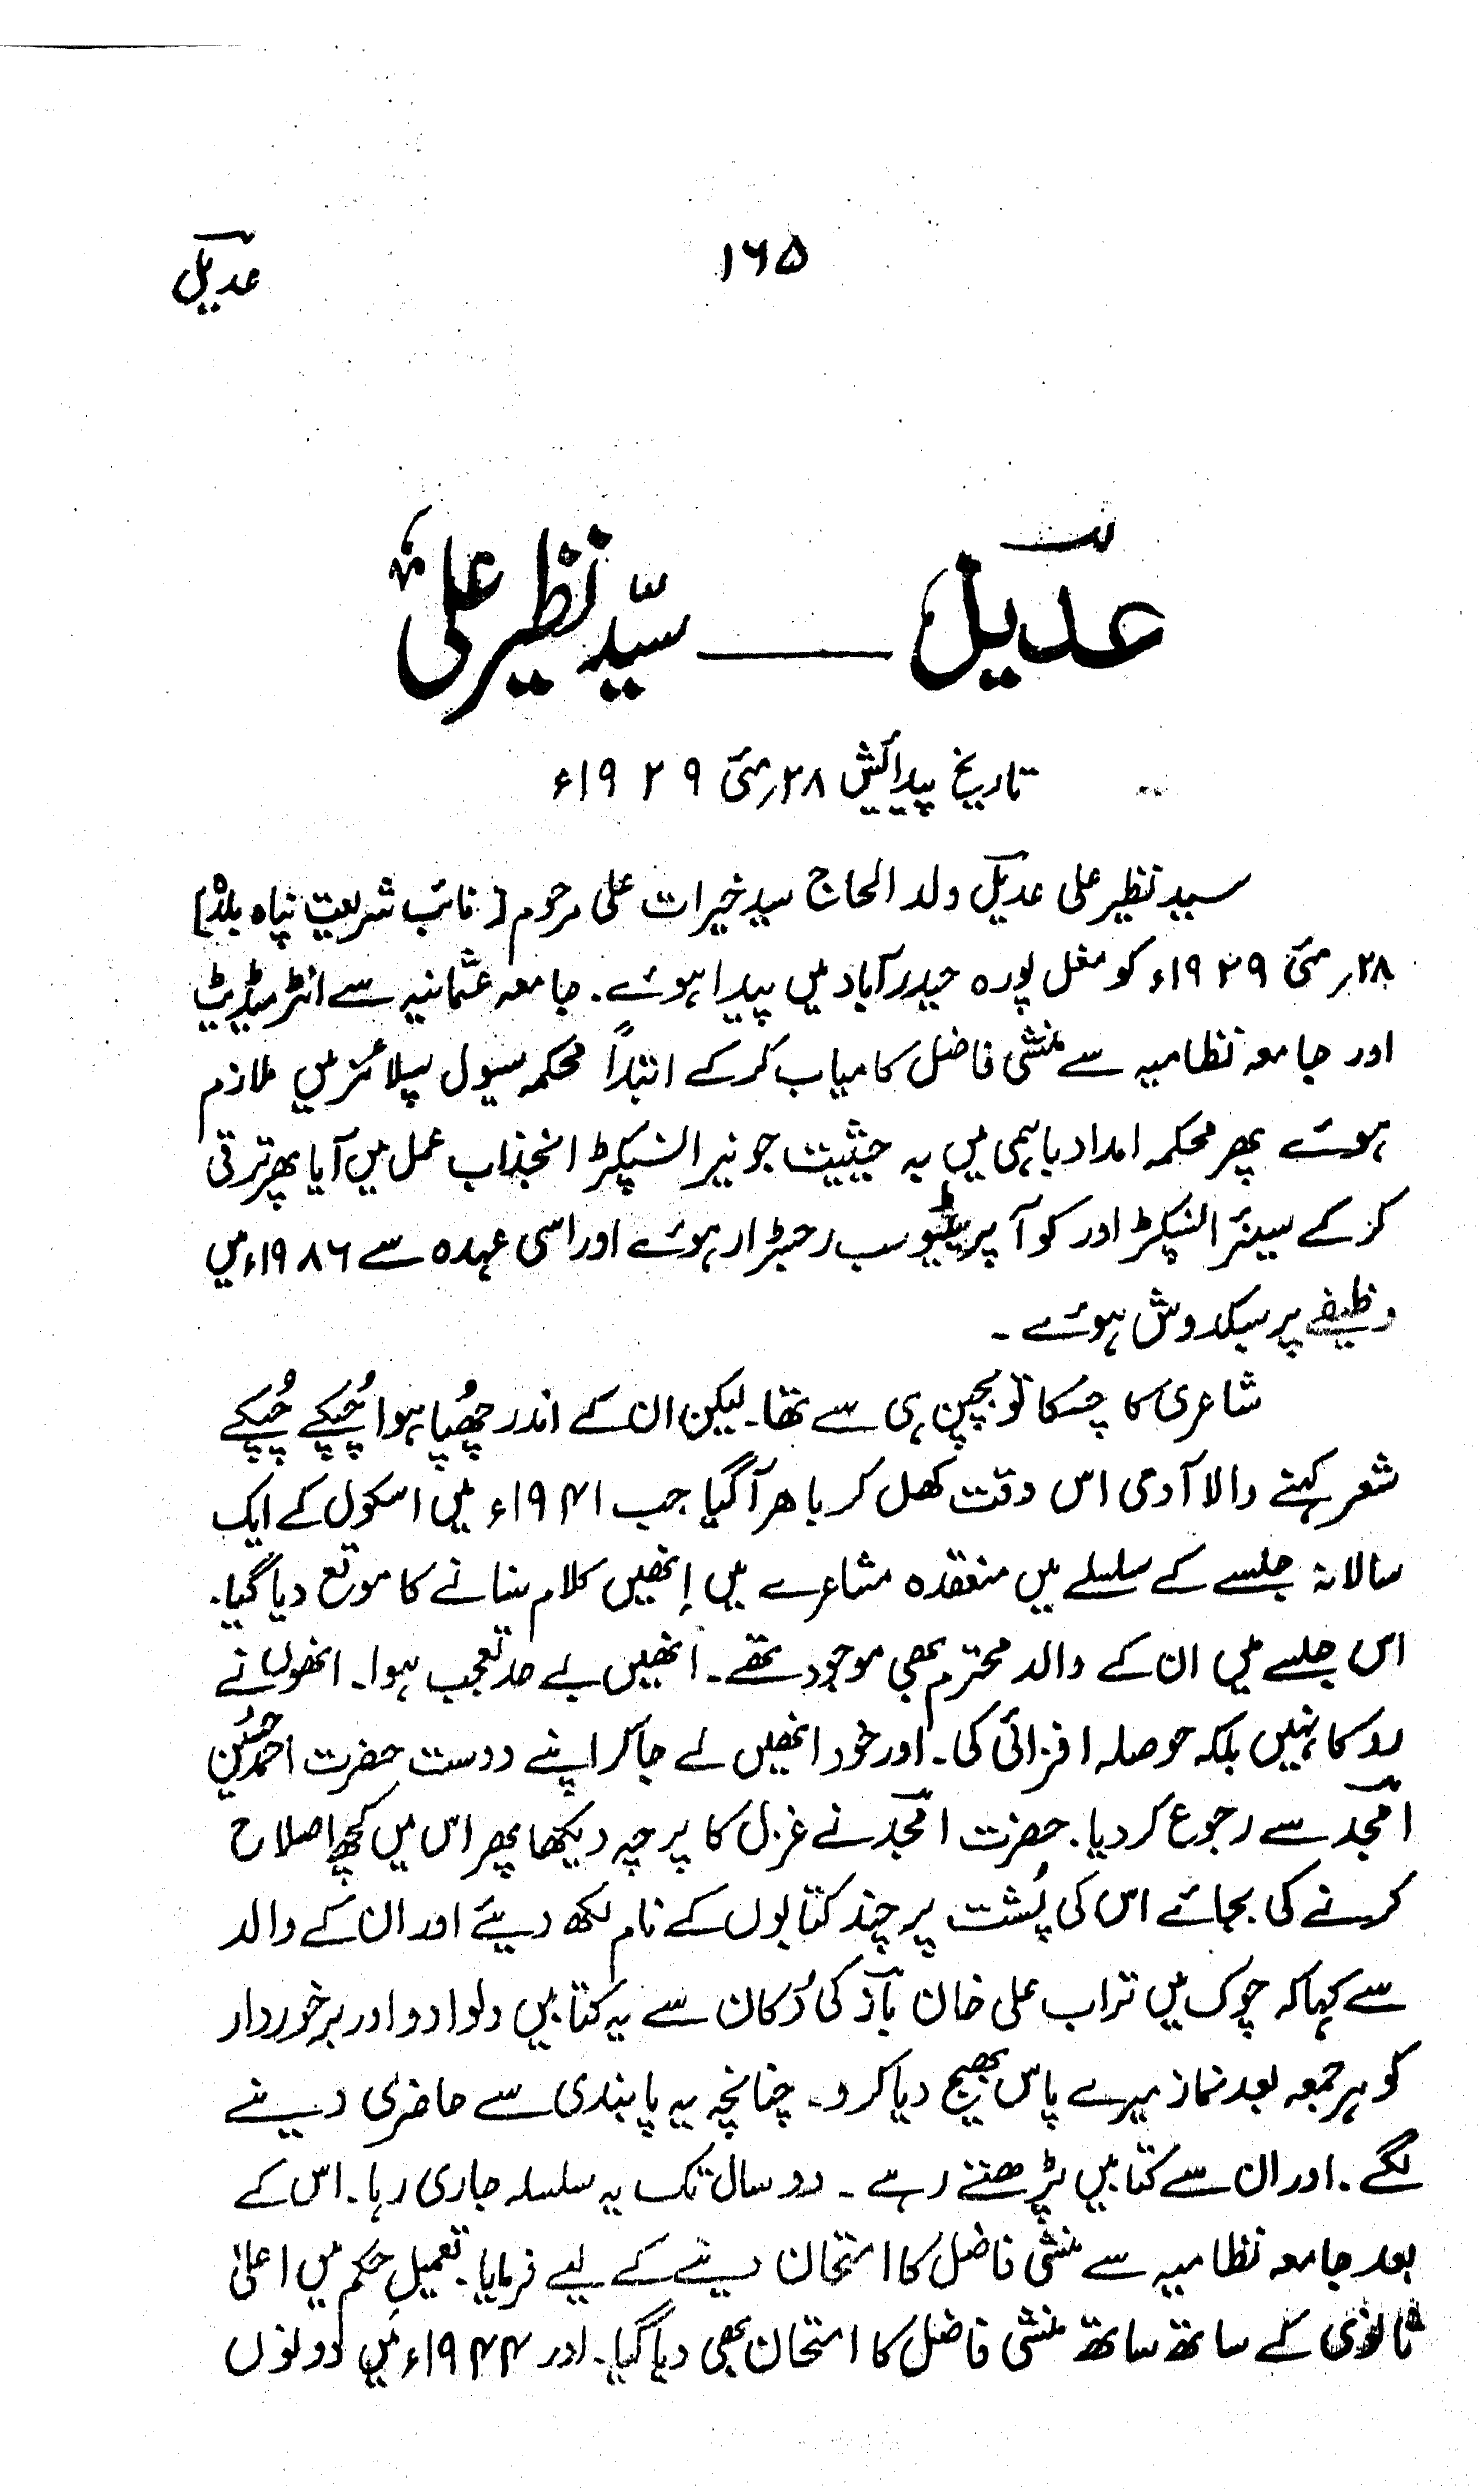 عدیلؔ
۱۶۵
عدیلؔ ــــــ سیّد نظیر علی
تاریخ پیدائش ۲۸؍مئی ۱۹۲۹ء
سید نظیر علی عدیلؔ ولد الحاج سید خیرات علی مرحوم [نائب شریعت پناہ بلدہ]
۲۸؍ مئی ۱۹۲۹ء کو مغل پورہ حیدرآباد میں پیدا ہوئے۔ جامعہ عثمانیہ سے انٹرمیڈیٹ
اور جامعہ نظامیہ سے منشی فاضل کامیاب کرکے ابتداً محکمہ سیول سپلائز میں ملازم
ہوئے پھر محکمہ امداد باہمی میں بہ حیثیت جونیر انسپکٹر انجذاب عمل میں آیا پھر ترقی
کر کے سینئر انسپکٹر اور کو آپریٹیو سب رجسٹرار ہوئے اور اسی عہدہ سے ۱۹۸۶ء میں
وظیفے پر سبکدوش ہوئے۔
شاعری کا چسکا تو بچپن ہی سے تھا۔ لیکن ان کے اندر چھُپا ہوا چُپکے چُپکے
شعر کہنے والا آدمی اس وقت کھل کر باھر آگیا جب ۱۹۴۱ء میں اسکول کے ایک
سالانہ جلسے کے سلسلے میں منعقدہ مشاعرے میں اِنھیں کلام سنانے کا موقع دیا گیا۔
اس جلسے میں ان کے والد محترم بھی موجود تھے۔ انھیں بے حد تعجب ہوا۔ انھوں نے
روکا نہیں بلکہ حوصلہ افزائی کی۔ اور خود انھیں لے جاکر اپنے دوست حضرت احمد حسین
امجدؔ سے رجوع کردیا۔ حضرت امجدؔ نے غزل کا پرچہ دیکھا پھر اس میں کچھ اصلاح
کرنے کی بجائے اس کی پُشت پر چند کتابوں کے نام لکھ دیئے اور ان کے والد
سے کہا کہ چوک میں تراب علی خان بازؔ کی دُکان سے یہ کتابیں دلوا دو اور برخوردار
کو ہر جمعہ بعد نماز میرے پاس بھیج دیا کرو۔ چنانچہ یہ پابندی سے حاضری دینے
لگے۔ اور ان سے کتابیں پڑھتے رہے۔ دو سال تک یہ سلسلہ جاری رہا۔ اس کے
بعد جامعہ نظامیہ سے منشی فاضل کا امتحان دینے کے لیے فرمایا۔ تعمیلِ حکم میں اعلیٰ
ثانوی کے ساتھ ساتھ منشی فاضل کا امتحان بھی دیا گیا۔ اور ۱۹۴۴ء میں دونوں